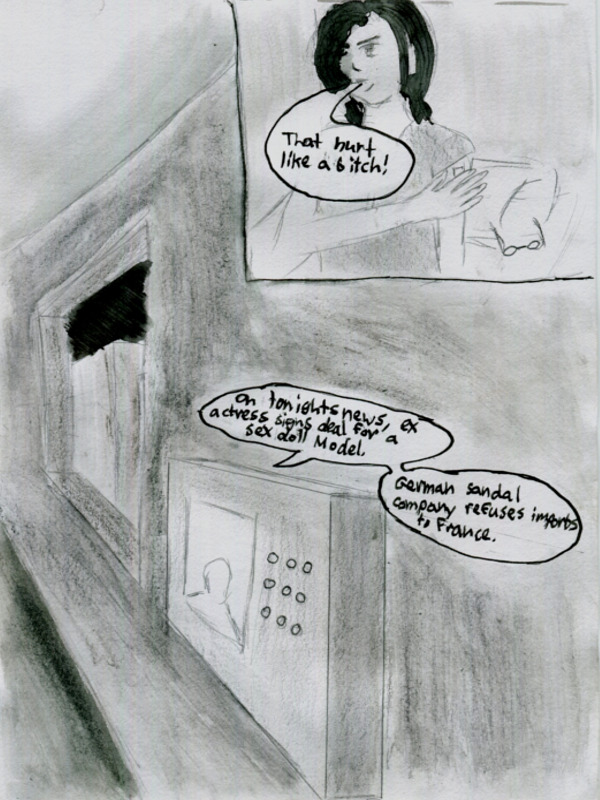 That hurt
like a bitch!
On tonights news, ex
actress signs deal for a
sex doll Model.
German sandal
company refuses imports
to France.